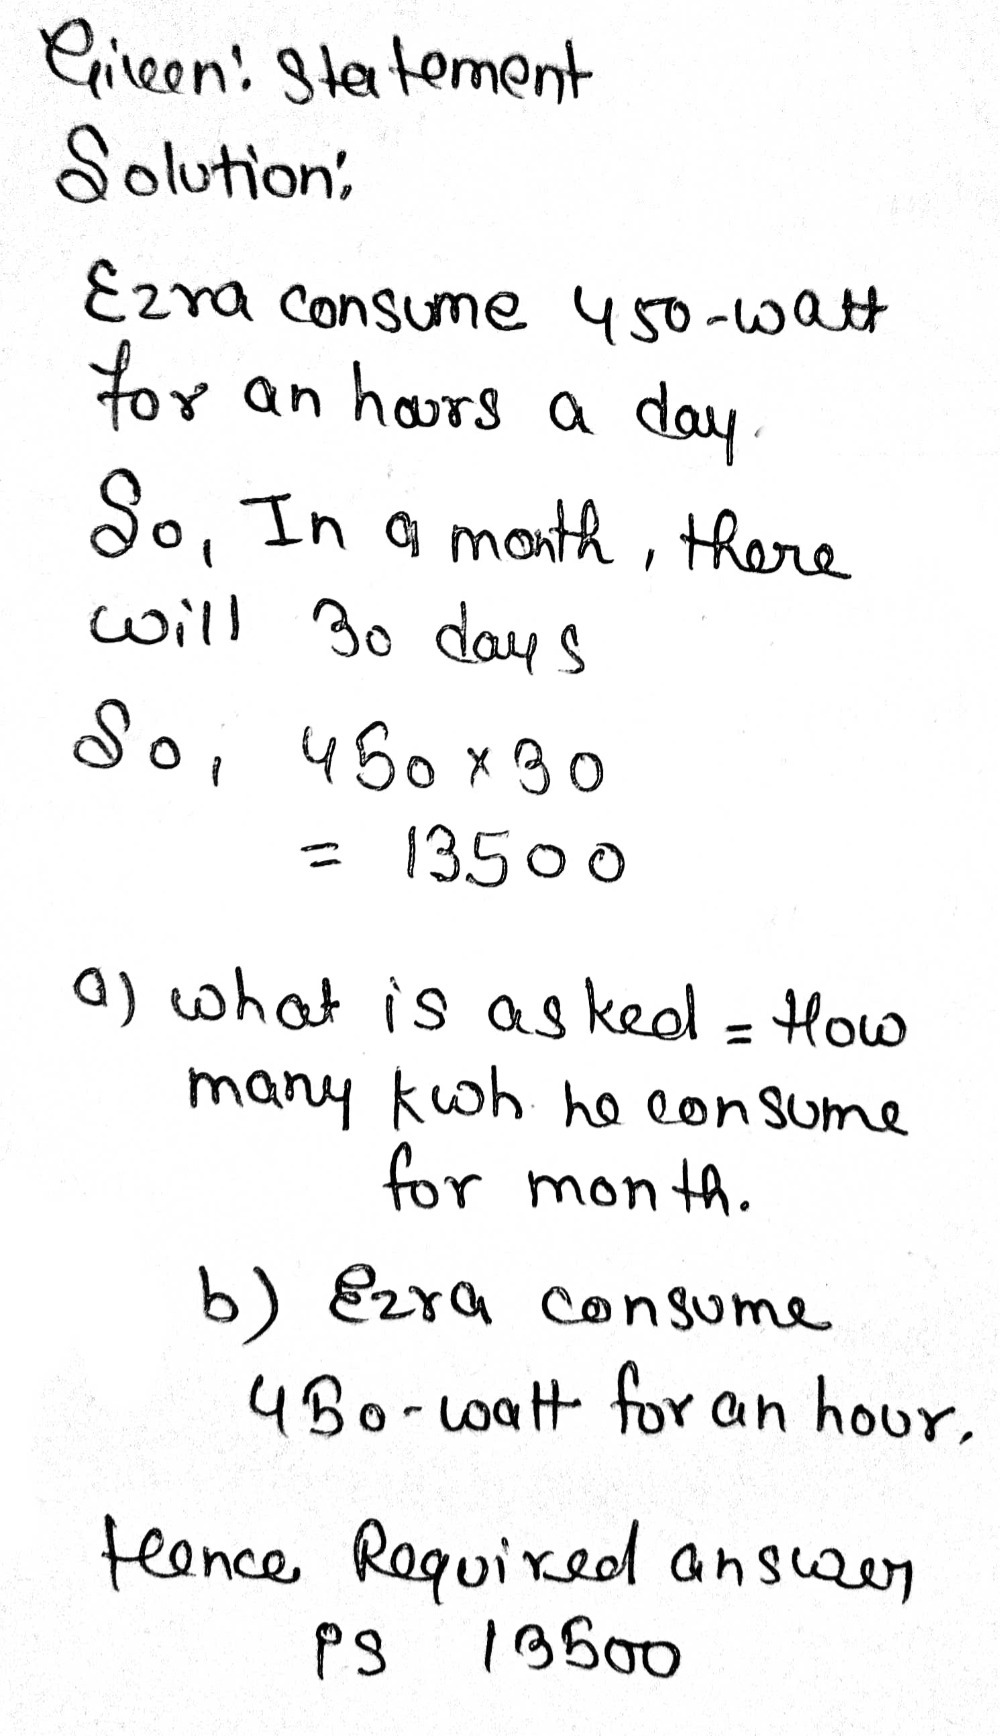 Given: Statement
Solution:
Ezra consume 450-watt
for an hours a day.
So, In a month, there
will 30 days
So, 450 x 30
= 13500
a) what is asked = How
many kwh he consume
for month.
b) Ezra consume
450-watt for an hour.
Hence Required answer
is 13500